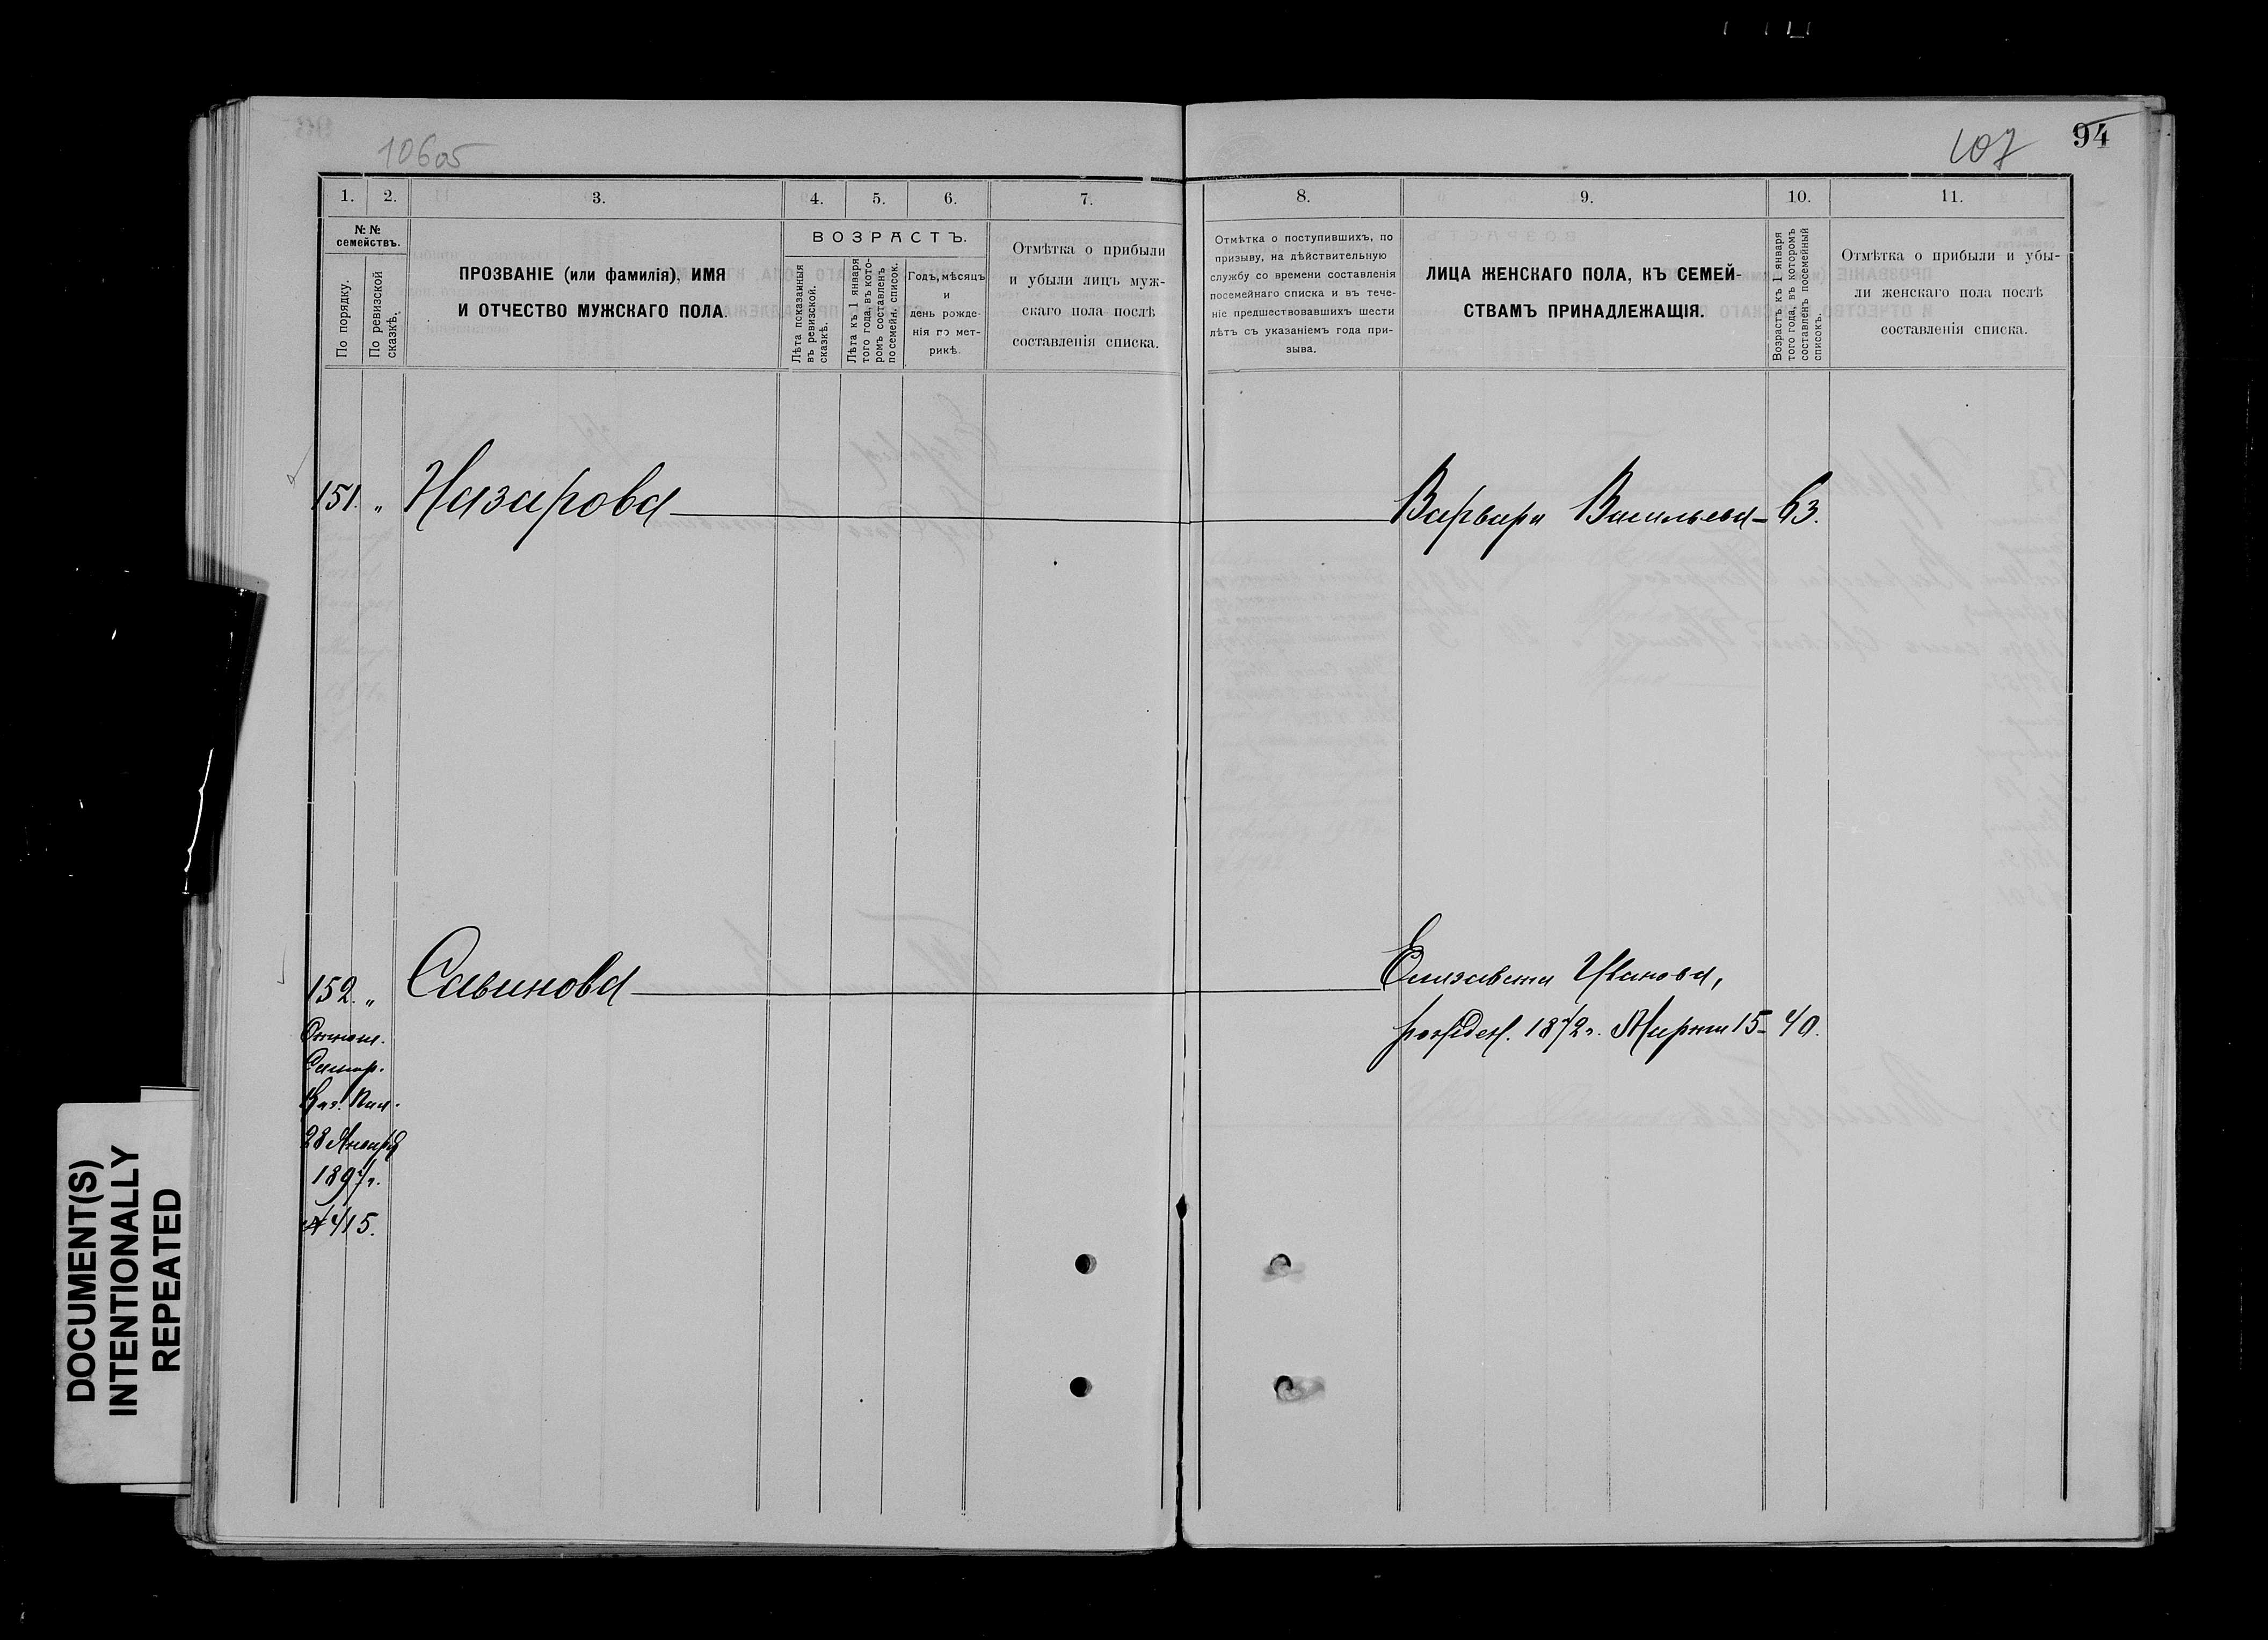 10605
107
94
1.
2.
3.
4.
5.
6.
7.
8.
9.
10.
11.
№ №
семействъ.
По порядку.
По ревизской
сказкѣ.
ПРОЗВАНІЕ (или фамилія), ИМЯ
И ОТЧЕСТВО МУЖСКАГО ПОЛА.
ВОЗРАСТЪ.
Лѣта показанныя
въ ревизской.
сказкѣ.
Лѣта къ 1 января
того года, въ кото-
ромъ составленъ
посемейн. список.
Годъ, мѣсяцъ
и
день рожде-
нія по мет-
рикѣ.
Отмѣтка о прибыли
и убыли лицъ муж-
скаго пола послѣ
составленія списка.
Отмѣтка о поступившихъ, по
призыву, на дѣйствительную
службу со времени составленія
посемейнаго списка и въ тече-
ніе предшествовавшихъ шести
лѣтъ съ указаніемъ года при-
зыва.
ЛИЦА ЖЕНСКАГО ПОЛА, КЪ СЕМЕЙ-
СТВАМЪ ПРИНАДЛЕЖАЩІЯ.
Возрастъ къ 1 января
того года, въ которомъ
составленъ посемейный
списокъ.
Отмѣтка о прибыли и убы-
ли женскаго пола послѣ
составленія списка.
151. „ Назарова Варвара Васильева - 63.
152. „ Савинова Елизавета Иванова,
рожден. 1872 г. Марта 15 - 40.
Отнош.
Самар.
Каз. Пал.
28 Января
1897 г.
№ 415.
DOCUMENT(S)
INTENTIONALLY
REPEATED